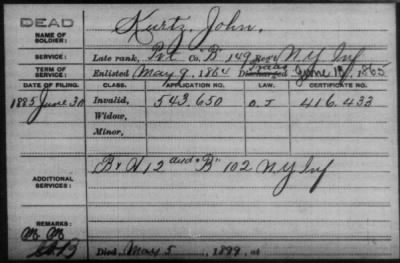 DEAD
Kurtz, John.
NAME OF SOLDIER:
SERVICE: Late rank, Pvt Co. "B" 149 Reg't N.Y. Inf
TERM OF SERVICE: Enlisted May 9, 1864 Discharged June 1865
DATE OF FILING. CLASS. APPLICATION NO. LAW. CERTIFICATE NO.
1885 June 30 Invalid, 543.650 416.433
Widow,
Minor,
ADDITIONAL SERVICES: 12 and "B" 102 N.Y Inf
REMARKS:
Died May 5, 1899, at